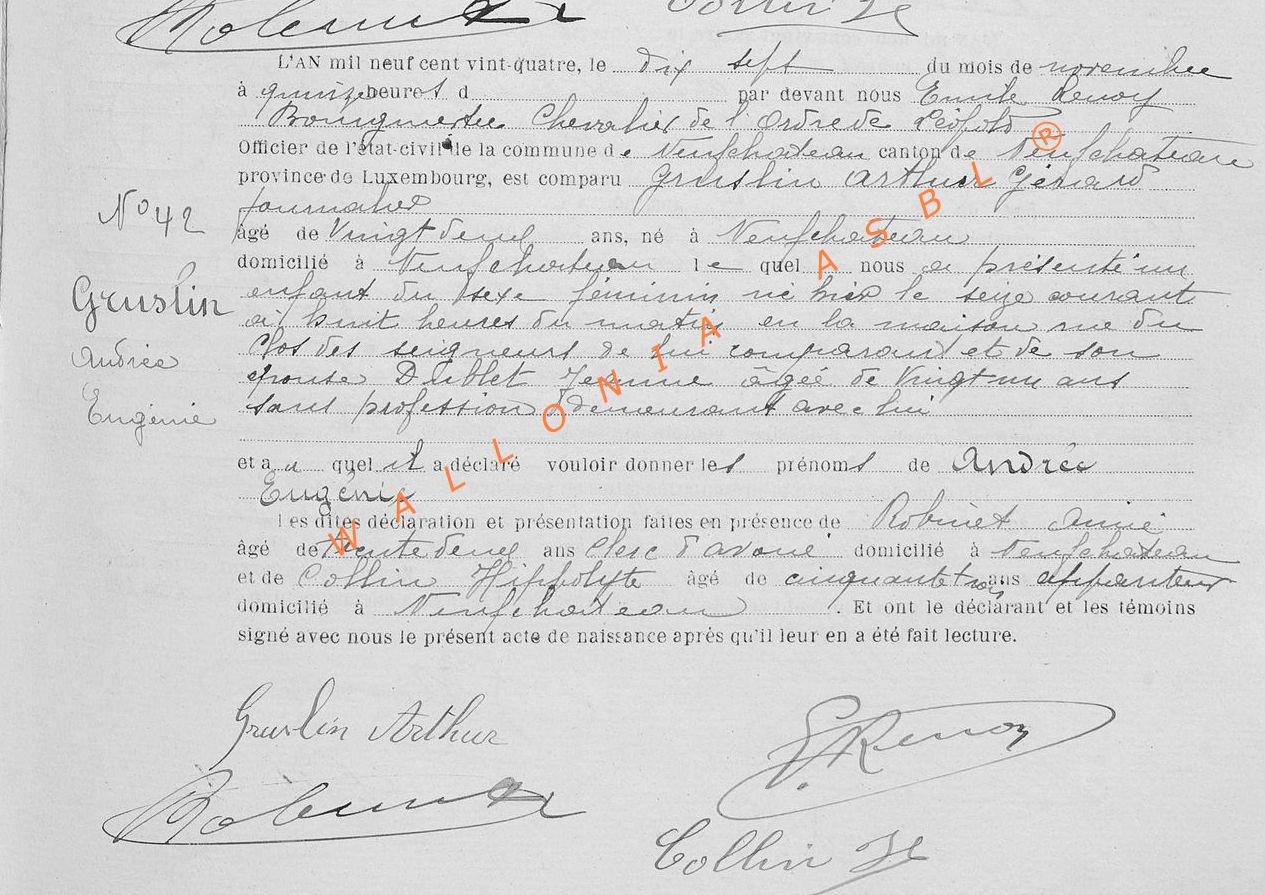 Collin H
L'AN mil neuf cent vint-quatre, le dix sept du mois de novembre
à quinze heures d par devant nous Emile Renoy
Bourgmestre Chevalier de l'Ordre de Léopold
Officier de l'état-civil de la commune de Neufchateau canton de Neufchateau
province de Luxembourg, est comparu Gruslin Arthur Gérard
journalier
N° 42
âgé de vingt deux ans, né à Neufchateau
domicilié à Neufchateau le quel nous a présenté un
enfant du sexe féminin né hier le seize courant
Gruslin
à huit heures du matin en la maison rue du
Andrée
Clos des seigneurs de lui comparant et de son
épouse Dublet Jeanne âgée de vingt un ans
Eugénie
sans profession demeurant avec lui
et a u quel il a déclaré vouloir donner les prénoms de Andrée
Eugénie
Les dites déclaration et présentation faites en présence de Robinet
âgé de trente deux ans clerc d'avoué domicilié à Neufchateau
et de Collin Hippolyte âgé de cinquante trois ans appariteur
domicilié à Neufchateau. Et ont le déclarant et les témoins
signé avec nous le présent acte de naissance après qu'il leur en a été fait lecture.
Gruslin Arthur
E. Renoy
Collin H
WALLONIA ASBL ®